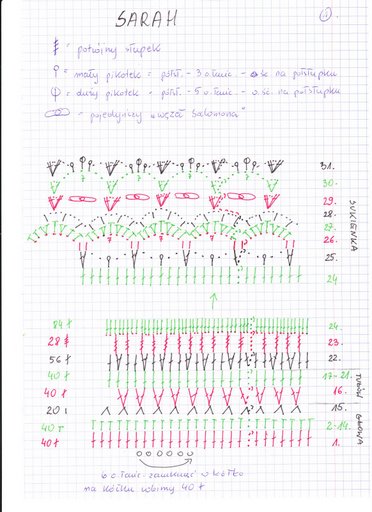 SARAH
1.
= potrójny słupek
= mały pikotek = półsł. - 3 o łańc. - o. śc. na półsłupku
= duży pikotek = półsł. - 5 o łańc. - o. śc. na półsłupku
= pojedynczy "węzeł Salomona"
31.
30.
29.
28.
27.
26.
25.
24
SUKIENKA
84 24.
28 23.
56 22.
40 17-21.
40 16.
20 15.
40 2-14.
40 1.
TUŁÓW
GŁOWA
6 o łańc. zamknąć w kółko
na kółku robimy 40